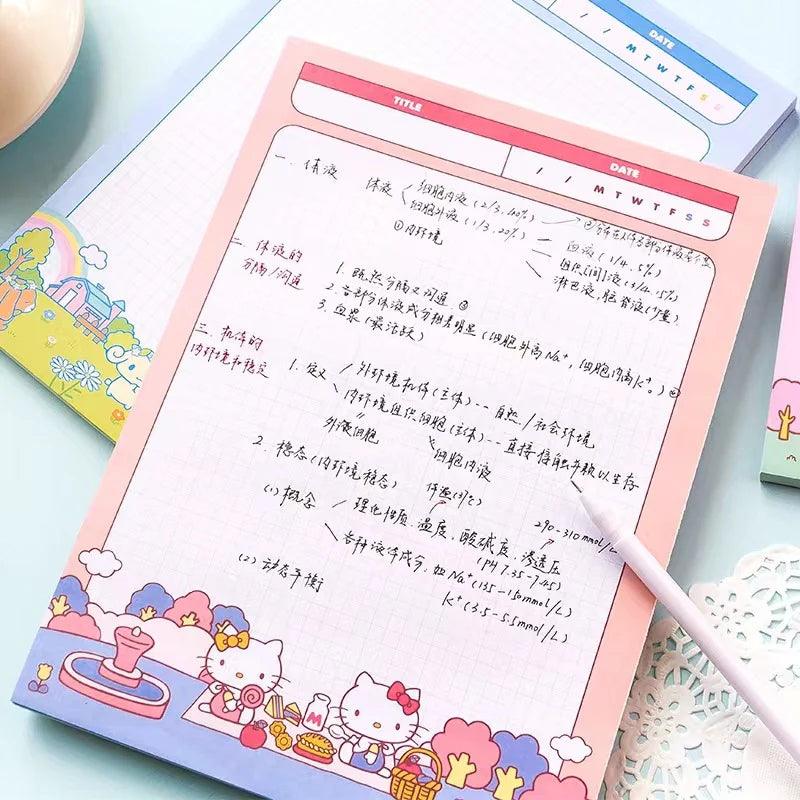 DATE
/ / M T W T F S S
TITLE
DATE
/ / M T W T F S S
一. 体液 体液 细胞内液(2/3, 40%)
细胞外液(1/3, 20%)
①内环境
血液(1/4, 5%)
组织[间]液(3/4, 15%)
淋巴液, 脑脊液(少量)
二. 体液的
分隔/沟通
1. 既然分隔又沟通
2. 各部分体液成分相差明显(细胞外高Na⁺, 细胞内高K⁺。)
3. 血浆(最活跃)
三. 机体的
内环境和稳定
1. 定义 外环境机体(主体)-- 自然/社会环境
内环境组织细胞(主体)-- 直接接触并赖以生存
外液细胞 细胞内液
2. 稳态(内环境稳态)
体温(37℃)
290-310mmol/L
(1) 概念 理化性质, 温度, 酸碱度, 渗透压
(PH 7.35-7.45)
各种液体成分, 如Na⁺(135-150mmol/L)
K⁺(3.5-5.5mmol/L)
(2) 动态平衡
M